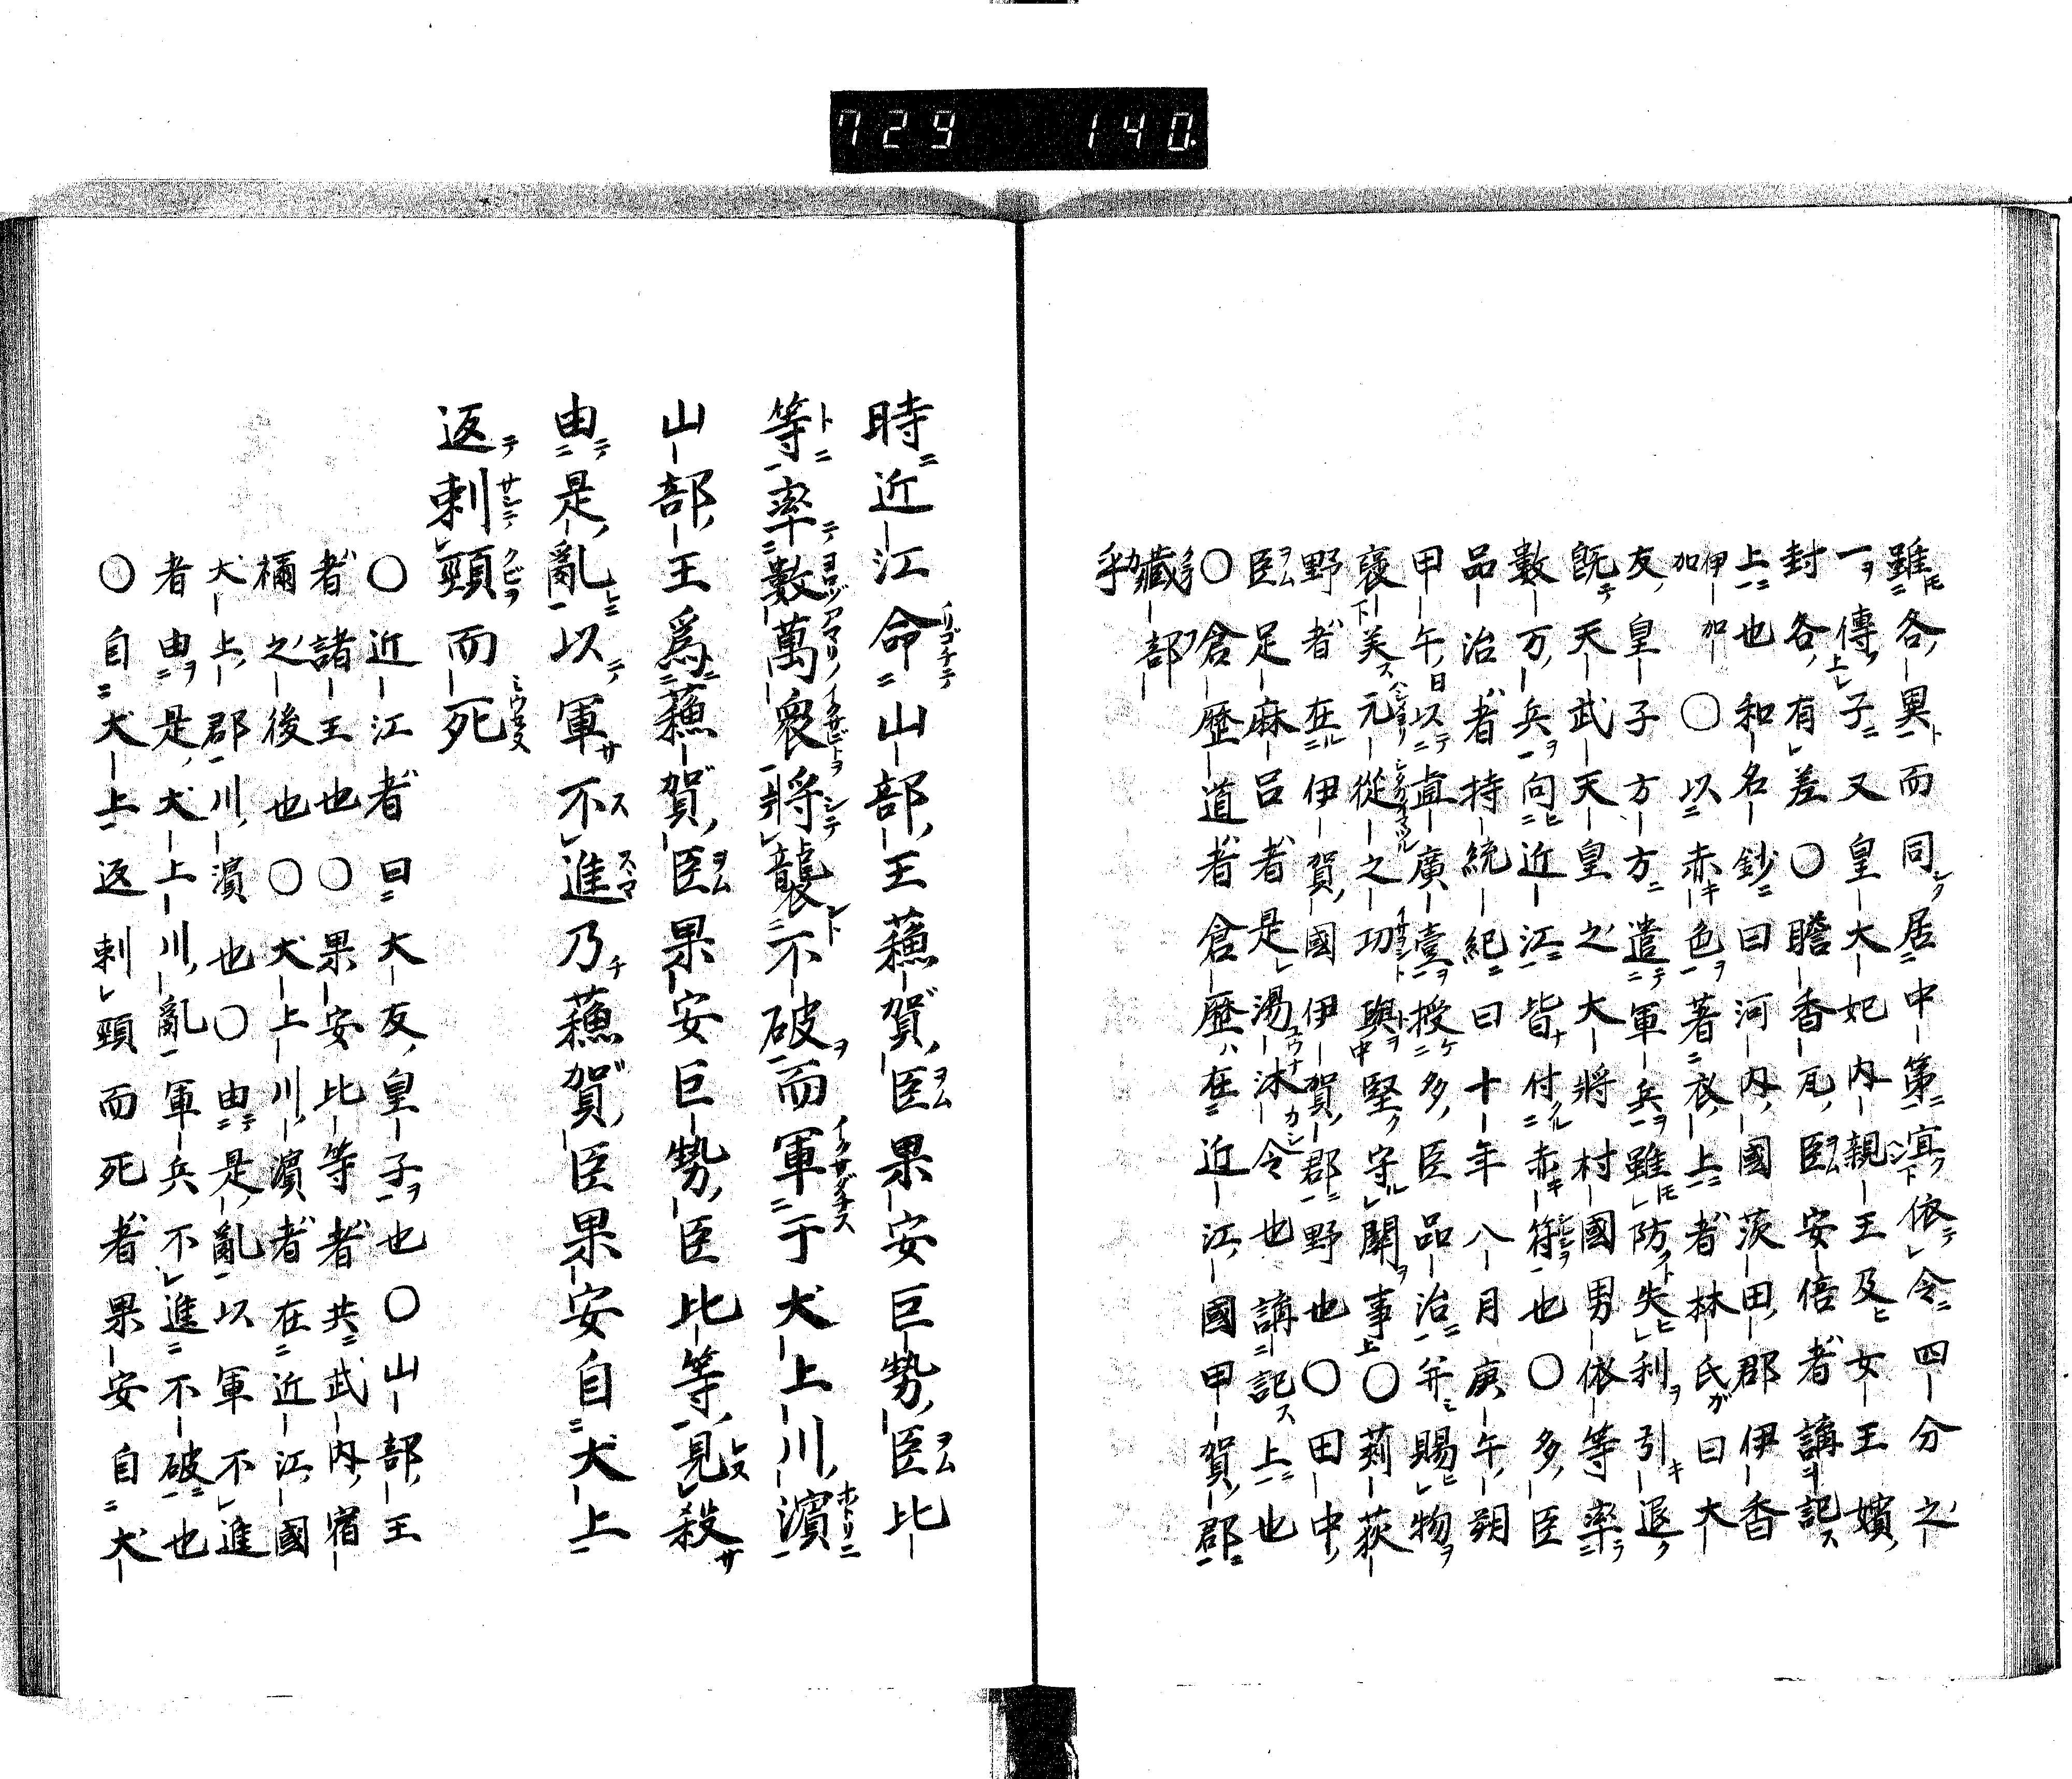 729 140
雖各異而同居中第宜依令四分之
一傳子又皇大妃内親王及女王嬪
封各有差〇膽香瓦臣安倍者講記
上也和名鈔曰河内國茨田郡伊香
伊加加〇以赤色著衣上者林氏曰大
友皇子方方遣軍兵雖防失利引退
既天武天皇之大將村國男依等率
數万兵向近江皆付赤符也〇多臣
品治者持統紀曰十年八月庚午朔
甲午日以直廣壹授多臣品治并賜物
襃美元從之功與堅守關事〇莿萩
野者在伊賀國伊賀郡野也〇田中
臣足麻呂者是湯沐令也講記上也
〇倉歷道者倉歷在近江國甲賀郡
藏部
乎
時近江命山部王蘓賀臣果安巨勢臣比
等率數萬衆將襲不破而軍于犬上川濱
山部王爲蘓賀臣果安巨勢臣比等見殺
由是亂以軍不進乃蘓賀臣果安自犬上
返刺頸而死
〇近江者曰大友皇子也〇山部王
者諸王也〇果安比等者共武内宿
禰之後也〇犬上川濱者在近江國
犬上郡川濱也〇由是亂以軍不進
者由是犬上川亂軍兵不進不破也
〇自犬上返刺頸而死者果安自犬